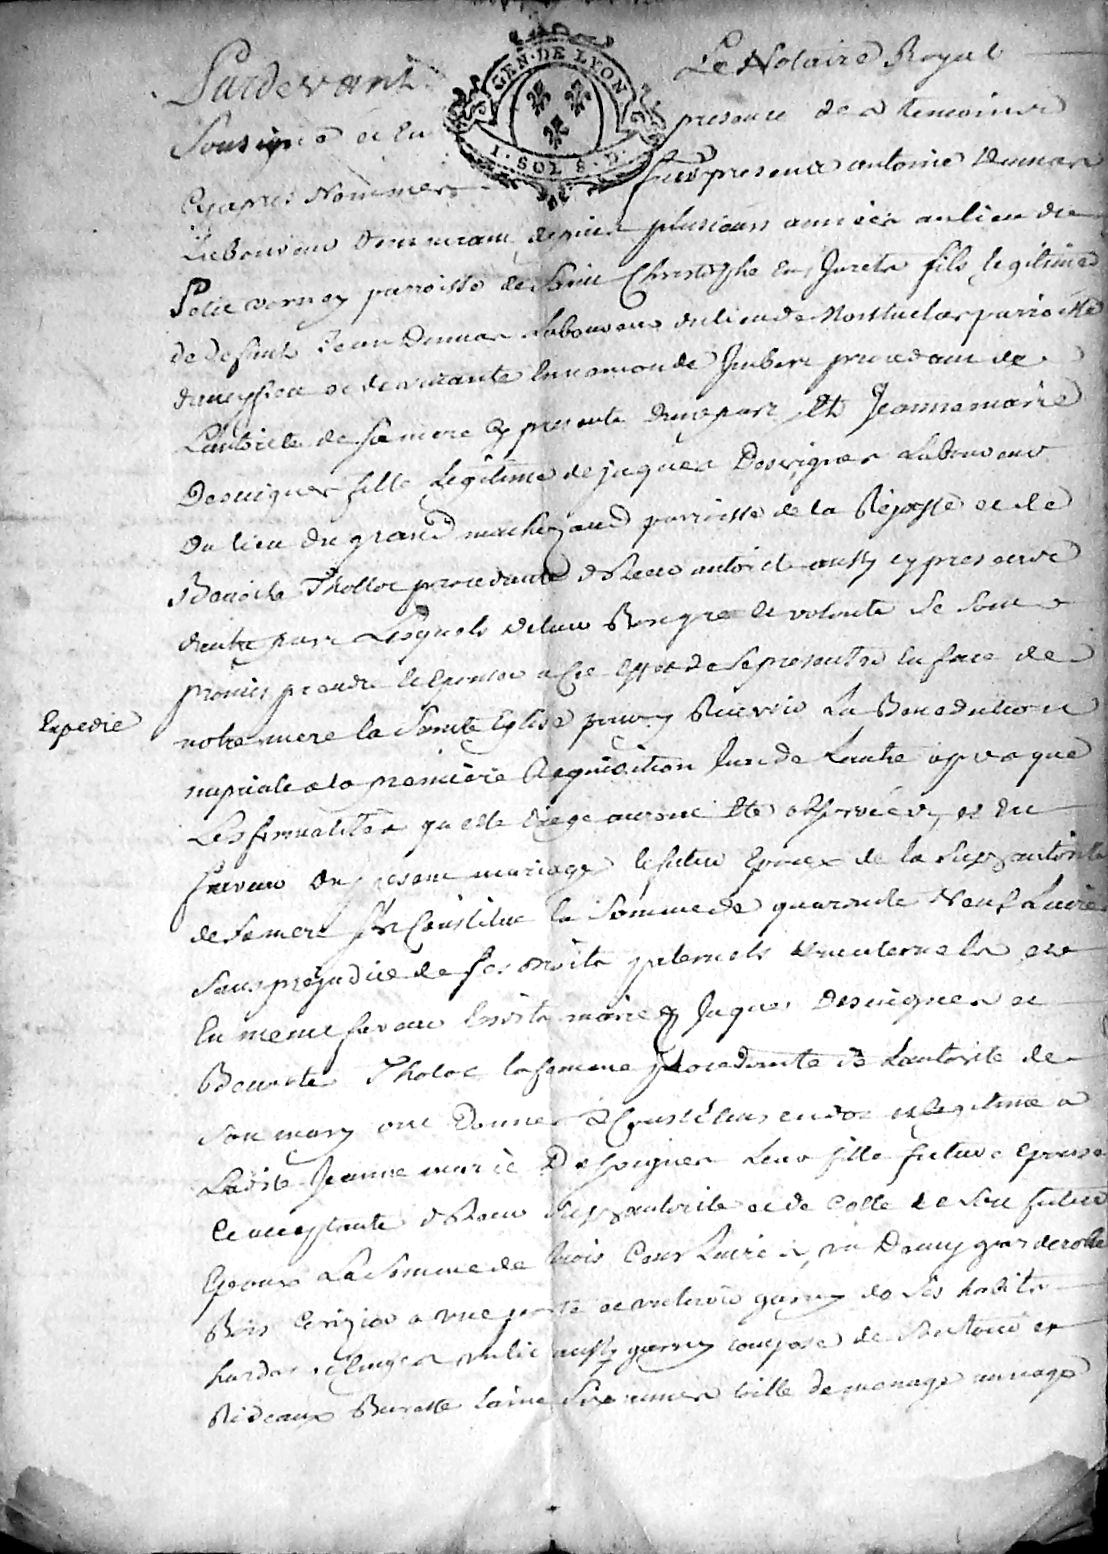 Pardevant Le Notaire Royal
GEN. DE LYON
1. SOL 8. D.
Sousigné et en presence de temoins
Cyapres Nommer fut presence antoine Dumas
Laboureur Demeurant depuis plusieurs années au lieu du
Petit vernay parroisse de Saint Christophe en Jurets fils legitime
de defunt Jean Dumas Laboureur du lieu de parroisse
et de vivante Ennemonde Imbert procedant de
L'autorité de Sa mere cy presente d'une part, Et Jeanne marie
Desvignes fille Legitime de jaques Desvignes Laboureur
du lieu du grand parroisse de la et de
Benoite Tholloc procedante de Leur autorité aussy cy presente
d'autre part Lesquels de leur Bon gré et volonté se sont
promis prendre et Epouser a Cet Effet de se presenter en face de
Expedié
notre mere la Sainte Eglise pour y Recevoir La Benediction
nuptiale a la premiere Requisition L'un de Lautre apres que
Les formalités qu'elle Exige auront Eté observées, et en
faveur du present mariage le futur Epoux de la Susd autorité
de Sa mere s'est Constitué la Somme de quarante Neuf Livres
Sans prejudice de ses droits paternels et maternels, et
En meme faveur Lesdits mariés Jaques Desvignes et
Benoite Tholoc sa femme procedante de L'autorité de
Son mary ont Donné & Constitué en dot legitime a
Ladite Jeanne marie Desvignes Leur fille future Epouse
acceptante de Leur Susd autorité et de celle de Son futur
Epoux La Somme de trois Cent Livres, un garderobe
Bois Cerizier a une porte et un tiroir garny de ses habits
hardes & linges un lit aussy garny composé de et
Rideaux Buratte laine Six aunes toille de menage